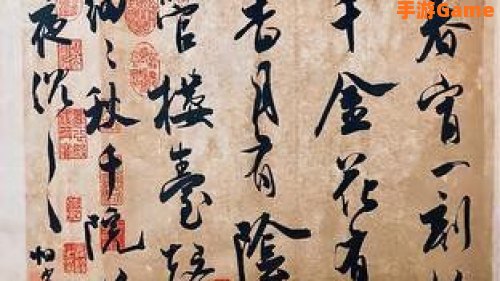 手游Game
春宵一刻
千金花有
香月有陰
管樓臺
細〻秋千院
夜沉〻